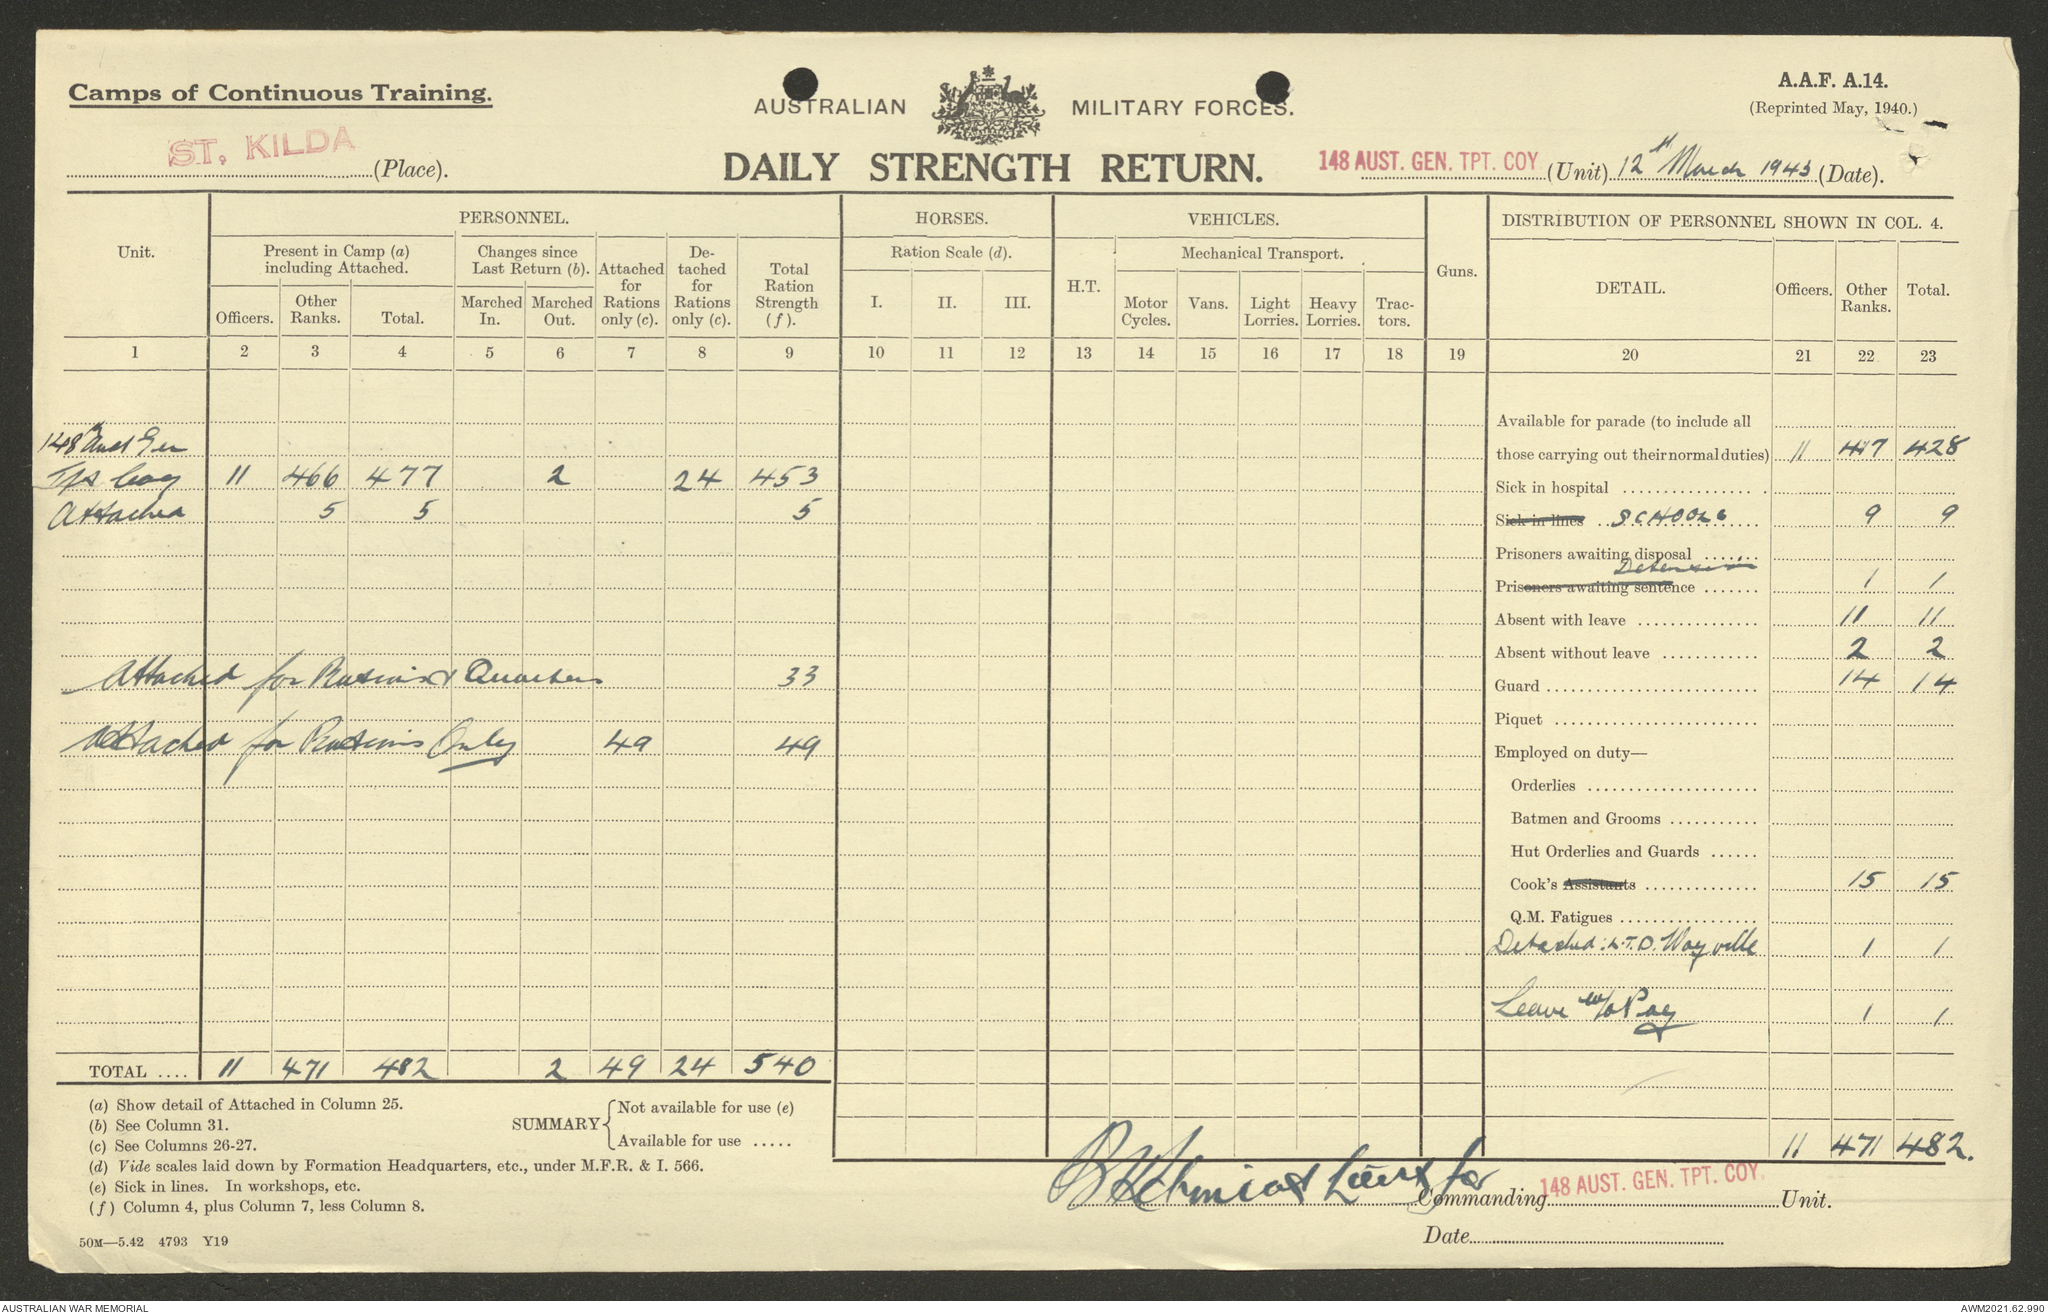 Camps of Continuous Training.
AUSTRALIAN MILITARY FORCES.
A.A.F. A.14.
(Reprinted May, 1940.)
ST. KILDA (Place).
DAILY STRENGTH RETURN.
148 AUST. GEN. TPT. COY (Unit) 12th March 1943 (Date).
Unit.
PERSONNEL.
HORSES.
VEHICLES.
Guns.
DISTRIBUTION OF PERSONNEL SHOWN IN COL. 4.
Present in Camp (a) including Attached.
Changes since Last Return (b).
Attached for Rations only (c).
Detached for Rations only (c).
Total Ration Strength (f).
Ration Scale (d).
H.T.
Mechanical Transport.
DETAIL.
Officers.
Other Ranks.
Total.
Officers.
Other Ranks.
Total.
Marched In.
Marched Out.
I.
II.
III.
Motor Cycles.
Vans.
Light Lorries.
Heavy Lorries.
Tractors.
1 2 3 4 5 6 7 8 9 10 11 12 13 14 15 16 17 18 19 20 21 22 23
148 Aust Gen
Tpt Coy 11 466 477 2 24 453
Attached 5 5 5
Attached for Rations & Quarters 33
Attached for Rations Only 49 49
TOTAL .... 11 471 482 2 49 24 540
Available for parade (to include all
those carrying out their normal duties) 11 417 428
Sick in hospital
Sick in lines SCHOOLS 9 9
Prisoners awaiting disposal
Detension
Prisoners awaiting sentence 1 1
Absent with leave 11 11
Absent without leave 2 2
Guard 14 14
Piquet
Employed on duty—
Orderlies
Batmen and Grooms
Hut Orderlies and Guards
Cook's Assistants 15 15
Q.M. Fatigues
Detached: L.T.D. Wayville 1 1
Leave w/o Pay 1 1
11 471 482.
(a) Show detail of Attached in Column 25.
(b) See Column 31.
(c) See Columns 26-27.
(d) Vide scales laid down by Formation Headquarters, etc., under M.F.R. & I. 566.
(e) Sick in lines. In workshops, etc.
(f) Column 4, plus Column 7, less Column 8.
SUMMARY
Not available for use (e)
Available for use .....
Lieut for
Commanding 148 AUST. GEN. TPT. COY. Unit.
Date
50M—5.42 4793 Y19
AUSTRALIAN WAR MEMORIAL
AWM2021.62.990